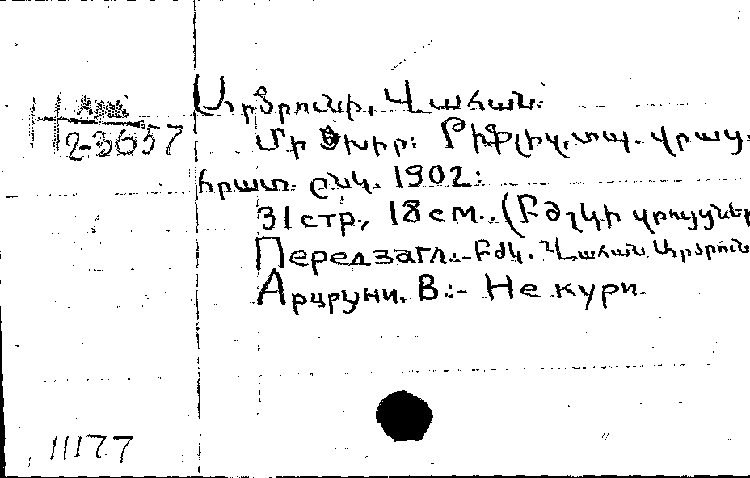 Արծրունի, Վահան.
2-3657
Մի ծխիր: Թիֆլիս, տպ. վրաց.
հրատ. ընկ. 1902:
31 стр., 18 см.. (Բժշկի զրույցներ
Перед загл.:-Բժկ. Վահան Արծրուն
Арцруни. В.:- Не кури.
11177